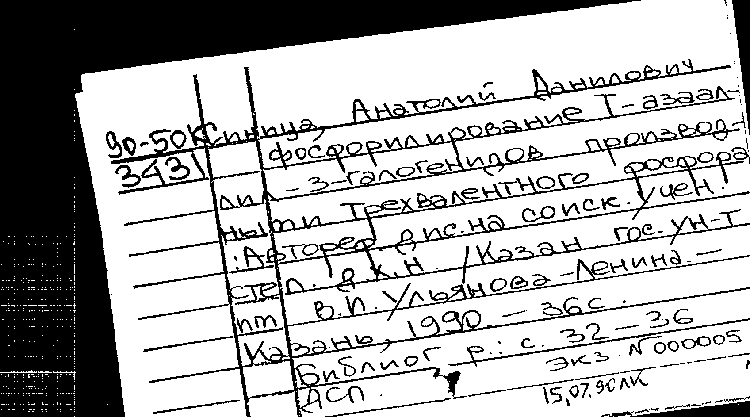 90-50К Синица, Анатолий Данилович
3431 фосфорилирование Т-азаал-
лил-3-галогенидов производ-
ными трехвалентного фосфора
:Автореф. дис. на соиск. учен.
степ. д.х.н /Казан гос. ун-т
им. В.И. Ульянова-Ленина. —
Казань, 1990. — 36 с.
Библиогр.: с. 32 — 36
ДСП.
экз N000005
15.07.90 ЛК